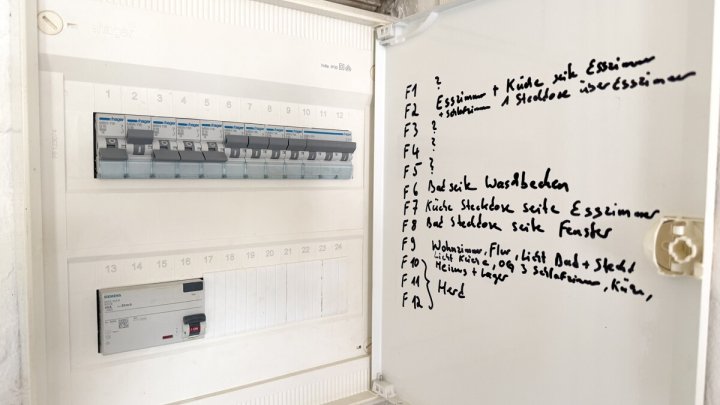 hager
1 2 3 4 5 6 7 8 9 10 11 12
hager hager hager hager hager hager hager hager
13 14 15 16 17 18 19 20 21 22 23 24
SIEMENS
F1 ?
F2 Esszimmer + Küche seite Esszimmer
+ Schlafzimmer 1 Steckdose über Esszimmer
F3 ?
F4 ?
F5 ?
F6 Bad seite Waschbecken
F7 Küche Steckdose seite Esszimmer
F8 Bad Steckdose seite Fenster
F9 Wohnzimmer, Flur, Licht Bad + Steckd
Licht Küche, OG 3 Schlafzimmer, Küche,
F10 Heizung + Lager
F11 Herd
F12